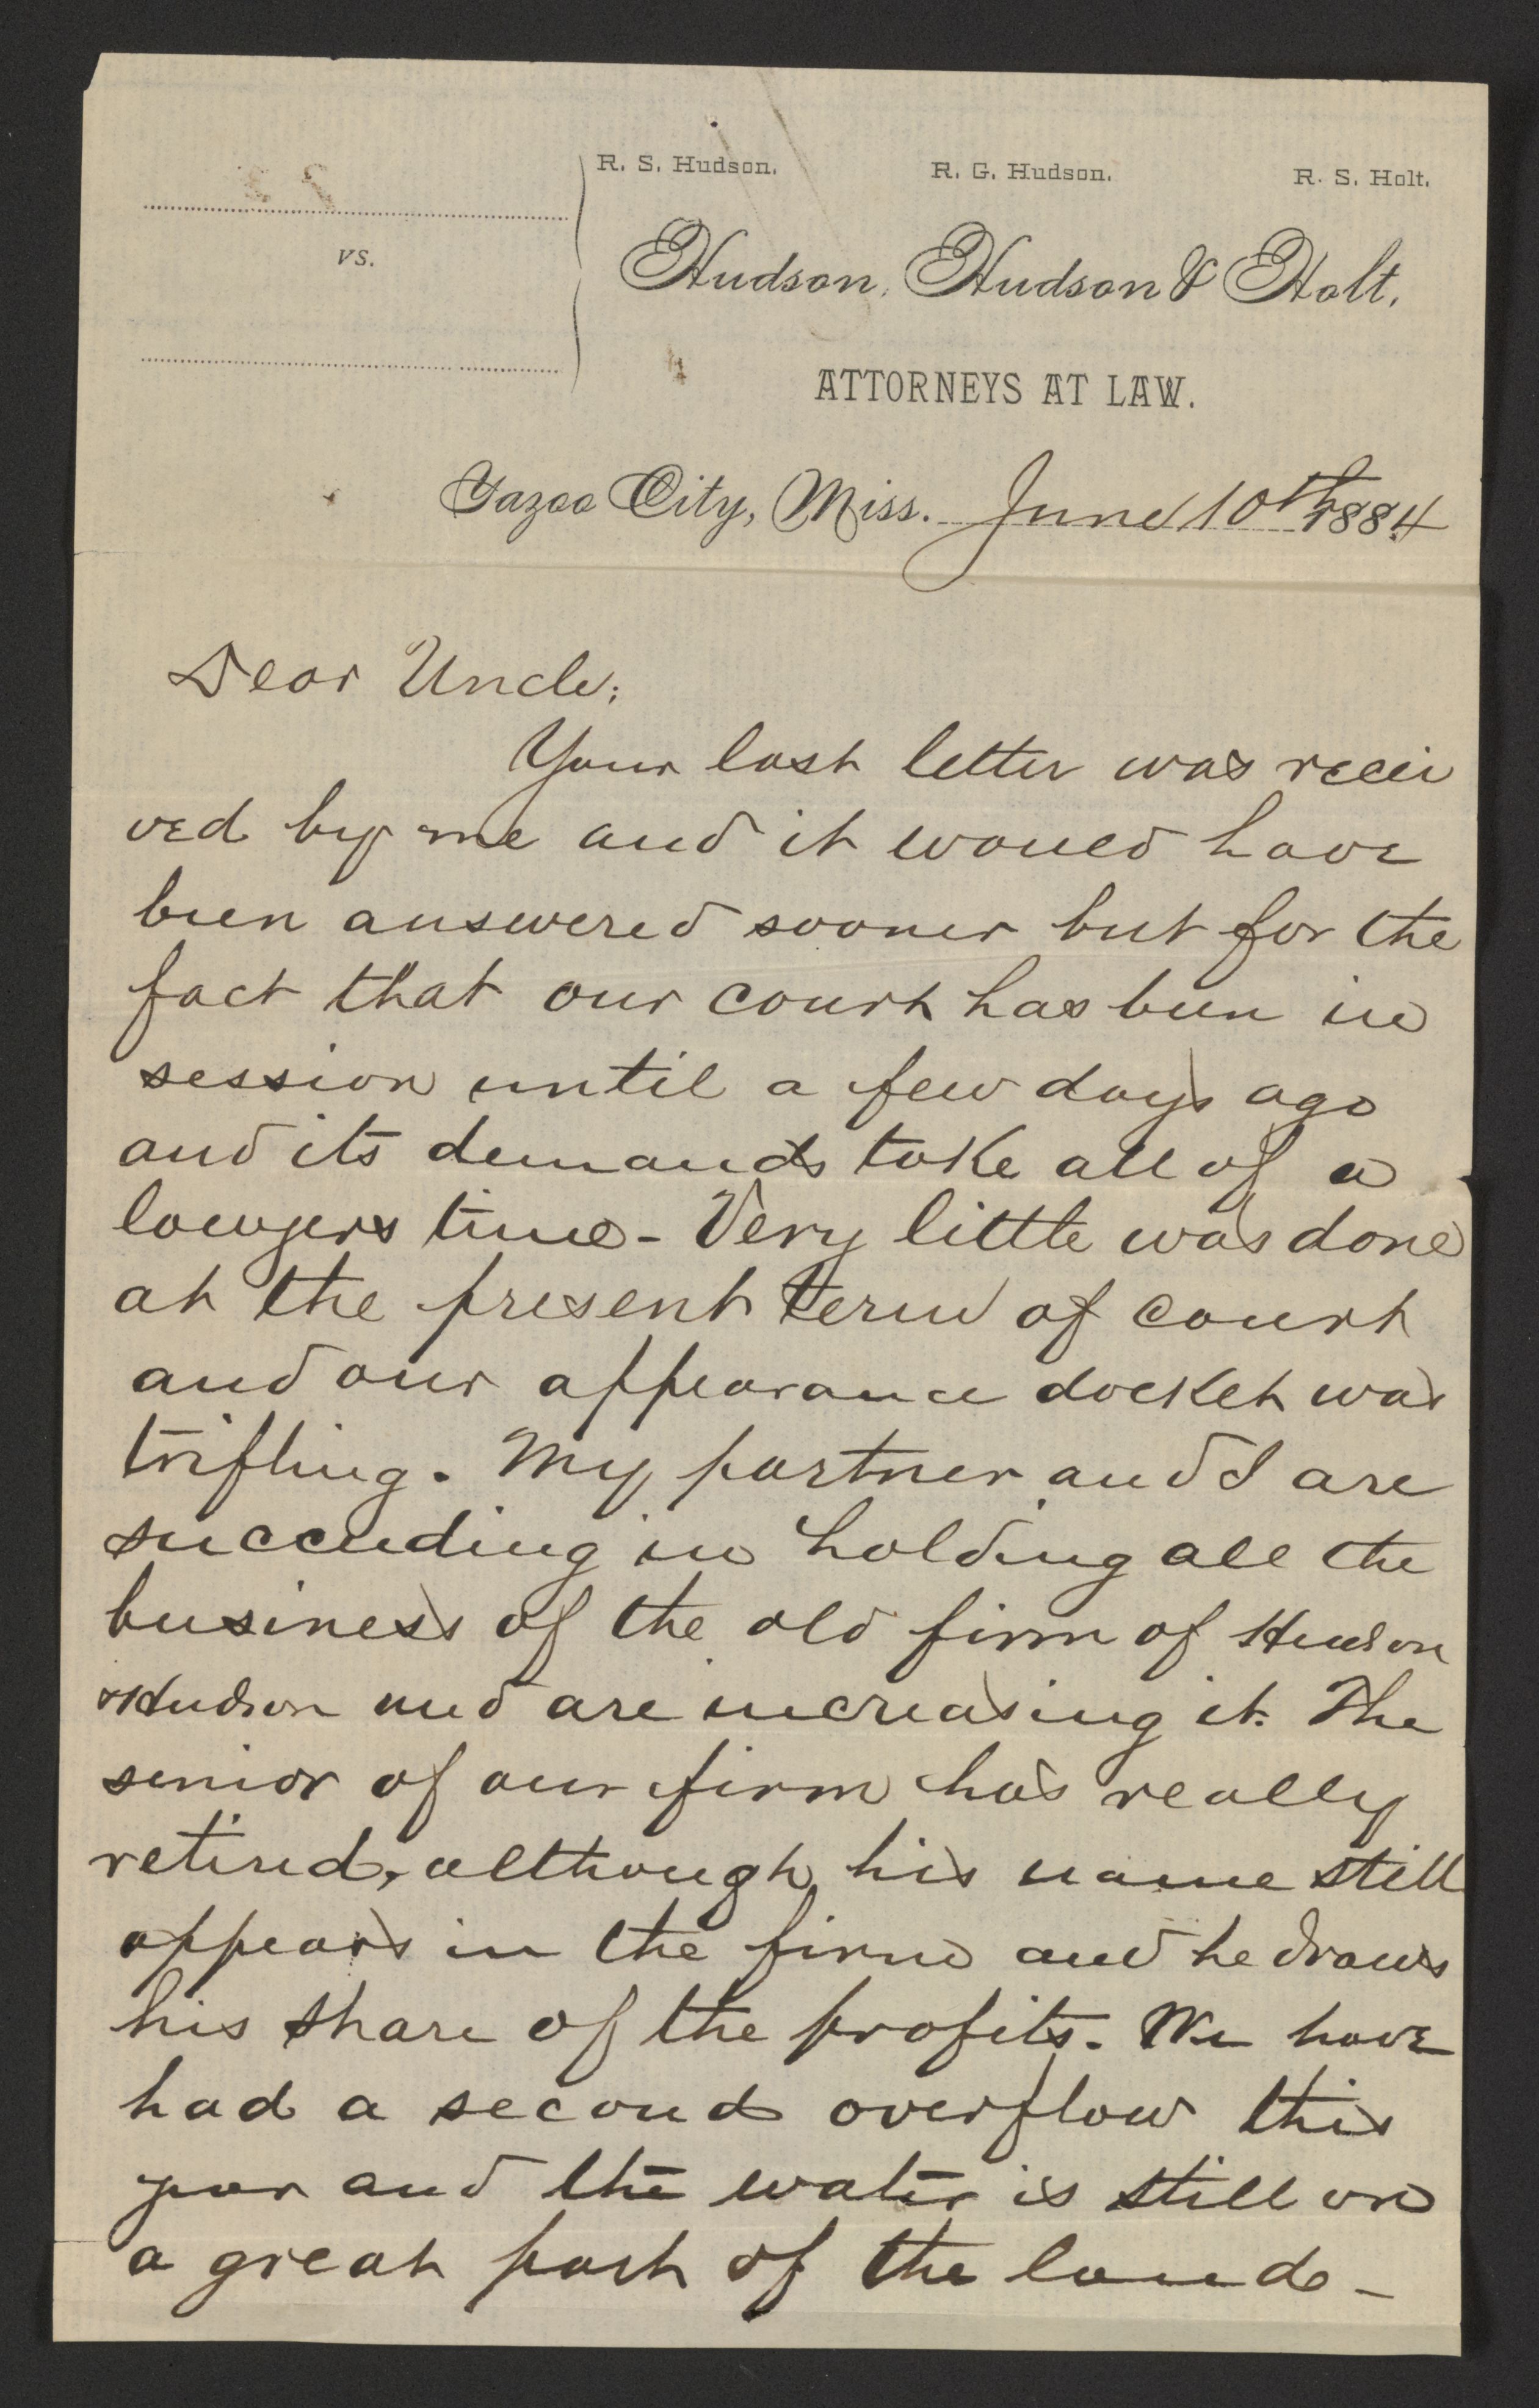 R. S. Hudson. R. G. Hudson. R. S. Holt.
vs.
Hudson, Hudson & Holt,
ATTORNEYS AT LAW.
Yazoo City, Miss. June 10th 1884
Dear Uncle;
Your last letter was recei
ved by me and it would have
been answered sooner but for the
fact that our court has been in
session until a few days ago
and its demands take all of a
lawyers time - Very little was done
at the present term of court
and our appearance docket was
trifling. My partner and I are
succeeding in holding all the
business of the old firm of Hudson
& Hudson and are increasing it. The
senior of our firm has really
retired, although his name still
appears in the firm and he draws
his share of the profits. We have
had a second overflow this
year and the water is still on
a great part of the lands -